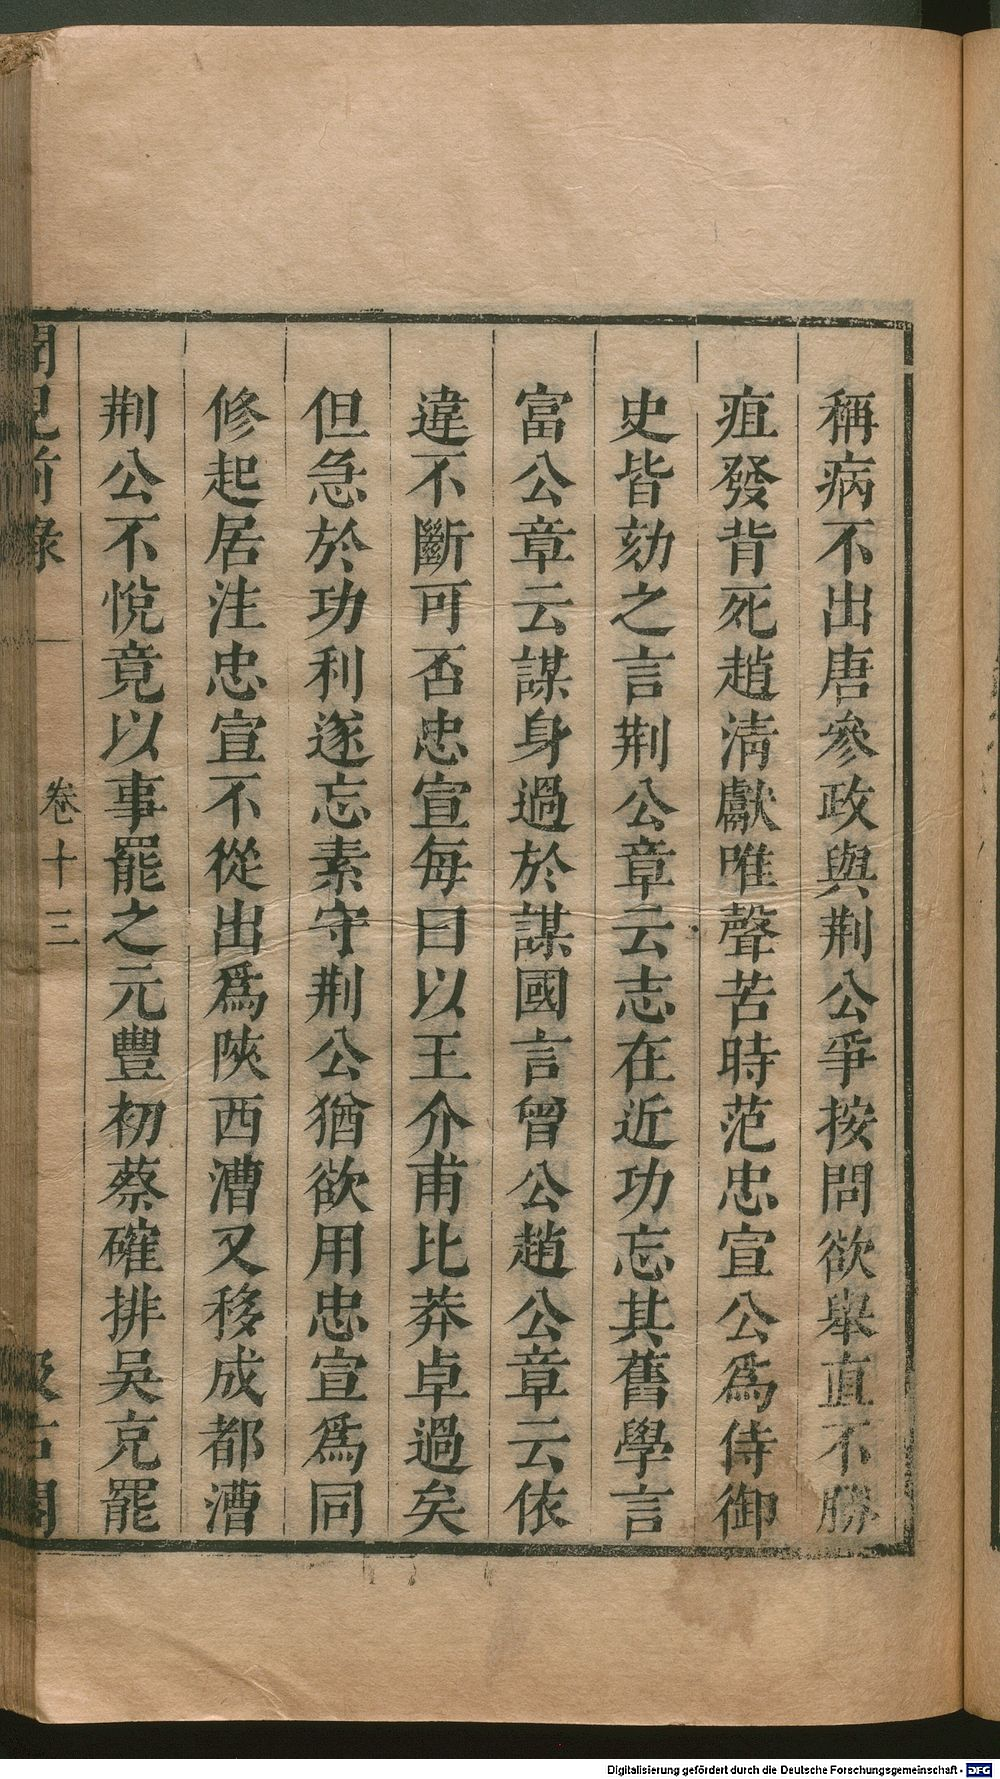 稱病不出唐參政與荆公爭按問欲舉直不勝
疽發背死趙淸獻唯聲苦時范忠宣公爲侍御
史皆劾之言荆公章云志在近功忘其舊學言
富公章云謀身過於謀國言曾公趙公章云依
違不斷可否忠宣每曰以王介甫比莽卓過矣
但急於功利遂忘素守荆公猶欲用忠宣爲同
修起居注忠宣不從出爲陝西漕又移成都漕
荆公不悅竟以事罷之元豐初蔡確排吳充罷
聞見前錄
卷十三
汲古閣
Digitalisierung gefördert durch die Deutsche Forschungsgemeinschaft - DFG